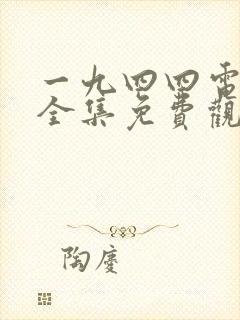 一九四四電
全集免費觀
陶慶